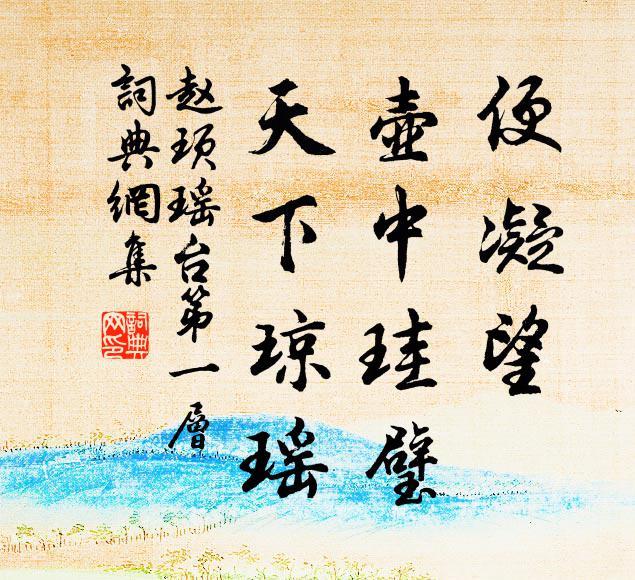 便凝望
壺中珪璧
天下琼瑶
赵顼瑶台第一層
詞典網集
詞典
网印